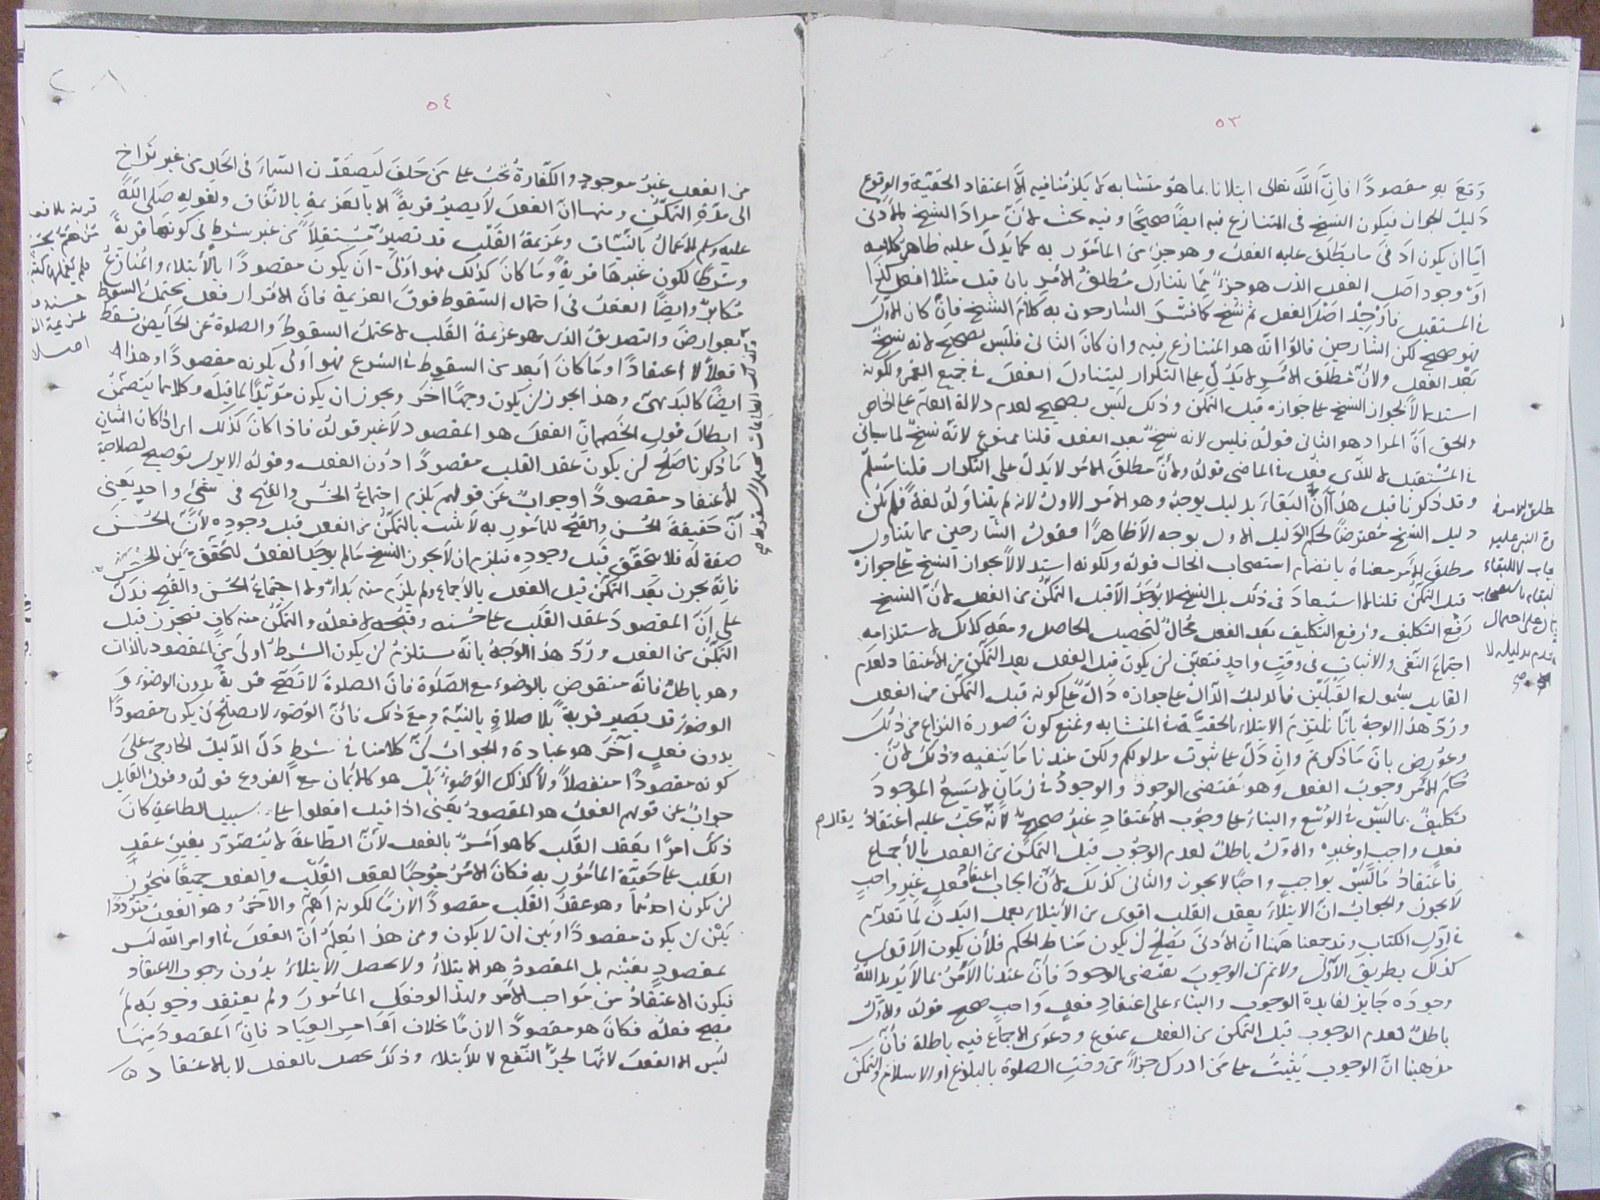 ٥٣
وقع به مقصودًا فانّ الله تعالى ابتلانا بما هو متشابه لا يلزمنا فيه الّا اعتقاد الحقيّة والوقوع
دليل الجواز فيكون النسخ فى المتنازع فيه ايضًا صحيحًا وفيه بحث لانّ مراد الشيخ بالادنى
امّا ان يكون ادنى ما يطلق عليه الفعل وهو جزء من المأمور به كما يدل عليه ظاهر كلامه
او وجود اصل الفعل الذى هو جزء مما يتناول مطلق الامر بان قيل مثلا افعل كذا
فى المستقبل فاوجد اصل الفعل ثم نسخ كما فسّر الشارحون به كلام الشيخ فان كان الاول
فهو صحيح لكن الشارحين قالوا انّه هو المتنازع فيه وان كان الثانى فليس بصحيح لانه نسخ
بعد الفعل ولانّ مطلق الامر لا يدل على التكرار ليتناول الفعل فى جميع العمر ولكونه
استدلالا بجواز النسخ على جوازه قبل التمكن وذلك ليس بصحيح لعدم دلالة العام على الخاص
والحق انّ المراد هو الثانى قوله فليس لانه نسخ بعد الفعل قلنا ممنوع لانّه نسخ لما سيأتى
فى المستقبل لا للذى فعل فى الماضى قوله ولانّ مطلق الامر لا يدلّ على التكرار قلنا مسلّم
وقد ذكرنا قبل هذا انّ البقاء بدليل يوجبه وهو الامر الاول لانه لم يتناوله لغة فلم يكن
دليل النسخ معترضًا لحكم الدليل الاول بوجه الّا ظاهرًا فقول الشارحين مما يتناول
مطلق الامر معناه بانضمام استصحاب الحال قوله ولكونه استدلالا بجواز النسخ على جوازه
قبل التمكن قلنا لا استبعاد فى ذلك بل النسخ لا يوجد الّا قبل التمكّن من الفعل لانّ النسخ
رفع التكليف ورفع التكليف بعد الفعل محال لتحصيل الحاصل ومعه كذلك لاستلزامه
اجتماع النفى والاثبات فى وقت واحد فتعيّن ان يكون قبل الفعل بعد التمكّن من الاعتقاد لعدم
القايل بشمول القبلتين فالدليل الدّال على جوازه دالّ على كونه قبل التمكن من الفعل
وردّ هذا الوجه بانّا نلتزم الابتلاء بالحقيّة فى المتشابه ونمنع كون صورة النزاع من ذلك
وعورض بانّ ما ذكرتم وان دلّ على ثبوت مدلولكم ولكن عندنا ما ينفيه وذلك لانّ
حكم الامر وجوب الفعل وهو يقتضى الوجود والوجود فى زمان لا يسع الموجود
تكليف بما ليس فى الوسع والبناء على وجوب الاعتقاد غير صحيح لانّه يجب عليه اعتقاد
فعل واجب او غيره والاول باطل لعدم الوجوب قبل التمكن من الفعل بالاجماع
فاعتقاد ما ليس بواجب واجبًا لا يجوز والثانى كذلك لانّ ايجاب اعتقاد فعل غير واجب
لا يجوز والجواب انّ الابتلاء بعقد القلب اقوى من الابتلاء بعمل البدن لما تقدّم
فى اوّل الكتاب وقد جمعنا ههنا انّ الادنى يصلح ان يكون مناط الحكم فلأن يكون الاقوى
كذلك بطريق الاولى ولا نم انّ الوجوب يقتضى الوجود فانّ عندنا الامر بما لا يريد الله
وجوده جايز لفايدة الوجوب والبناء على اعتقاد فعل واجب صحيح قوله والاول
باطل لعدم الوجوب قبل التمكن من الفعل ممنوع ودعوى الاجماع فيه باطلة فانّ
مذهبنا انّ الوجوب يثبت على من ادرك جزءًا من وقت الصلوة بالبلوغ او الاسلام والتمكن
٥٤
من الفعل غير موجود والكفّارة تجب على من حلف ليصعدن السماء فى الحال من غير تراخ
الى مدة التمكّن ومنها انّ الفعل لا يصير قربةً الا بالعزيمة بالاتفاق ولقوله صلى الله
عليه وسلم الاعمال بالنيّات وعزيمة القلب قد تصير مستقلّا من غير شرط فى كونها قربةً
وشرطًا لكون غيرها قربةً وما كان كذلك فهو اولى ان يكون مقصودًا بالابتلاء والمنازع
مكابر وايضًا الفعل فى احتمال السقوط فوق العزيمة فانّ الاقرار فعل يحتمل السقوط
بعوارض والتصديق الذى هو عزيمة القلب لا يحتمل السقوط والصلوة عن الحائض تسقط
فعلا لا اعتقادًا وما كان ابعد من السقوط فى الشرع فهو اولى بكونه مقصودًا وهذا
ايضًا كالبديهى وهذا يجوز ان يكون وجهًا آخر ويجوز ان يكون مؤيّدًا لما قبله وكلاهما يتضمّن
ابطال قول الخصم انّ الفعل هو المقصود لا غير قوله فاذا كان كذلك اى اذا كان الشان
ما ذكرنا صلح ان يكون عقد القلب مقصودًا دون الفعل وقوله الا يرى توضيح لصلاحية
الاعتقاد مقصودًا وجواب عن قولهم يلزم اجتماع الحسن والقبح فى شىء واحد يعنى
انّ حقيقة الحسن والقبح للمأمور به لا يثبت بالتمكّن من الفعل قبل وجوده لانّ الحسن
صفة له فلا يتحقق قبل وجوده فيلزم ان لا يجوز النسخ ما لم يوجد الفعل لتحقق من الحسن
فانّه يجوز بعد التمكن قبل الفعل بالاجماع ولم يلزم منه بداء ولا اجتماع الحسن والقبح فدلّ
على انّ المقصود عقد القلب على حسنه وقبحه لا فعله والتمكّن منه كاف فيجوز قبل
التمكن من الفعل وردّ هذا الوجه بانّه يستلزم ان يكون الشرط اولى من المقصود بالذات
وهو باطل فانّه منقوض بالوضوء مع الصلوة فانّ الصلوة لا تصح قربة بدون الوضوء و
الوضوء قد يصير قربة بلا صلاة بالنيّة ومع ذلك فانّ الوضوء لا يصلح ان يكون مقصودًا
بدون فعل آخر هو عبادة والجواب انّ كلامنا فى شرط دلّ الدليل الخارجى على
كونه مقصودًا منفصلاً ولا كذلك الوضوء بل هو كالايمان مع الفروع قوله وقول القايل
جواب عن قولهم الفعل هو المقصود يعنى اذا قيل افعلوا على سبيل الطاعة كان
ذلك امرًا بعقد القلب كما هو امر بالفعل لانّ الطاعة لا يتصوّر بغير عقد
القلب على حقيّة المأمور به فكان الامر موجبًا لعقد القلب والفعل جميعًا فيجوز
ان يكون احدهما وهو عقد القلب مقصودًا لازمًا لكونه اهمّ والآخر وهو الفعل متردّدًا
بين ان يكون مقصودًا وبين ان لا يكون ومن هذا يعلم انّ الفعل فى اوامر الله ليس
بمقصود بعينه بل المقصود هو الابتلاء ولا يحصل الابتلاء بدون وجوب الاعتقاد
فيكون الاعتقاد من مواجب الامر ولهذا لو فعل المأمور ولم يعتقد وجوبه لم
يصح فعله فكان هو مقصودًا لازمًا بخلاف اوامر العباد فانّ المقصود منها
ليس الا الفعل لانّها لجرّ النفع لا للابتلاء وذلك يحصل بالفعل لا بالاعتقاد